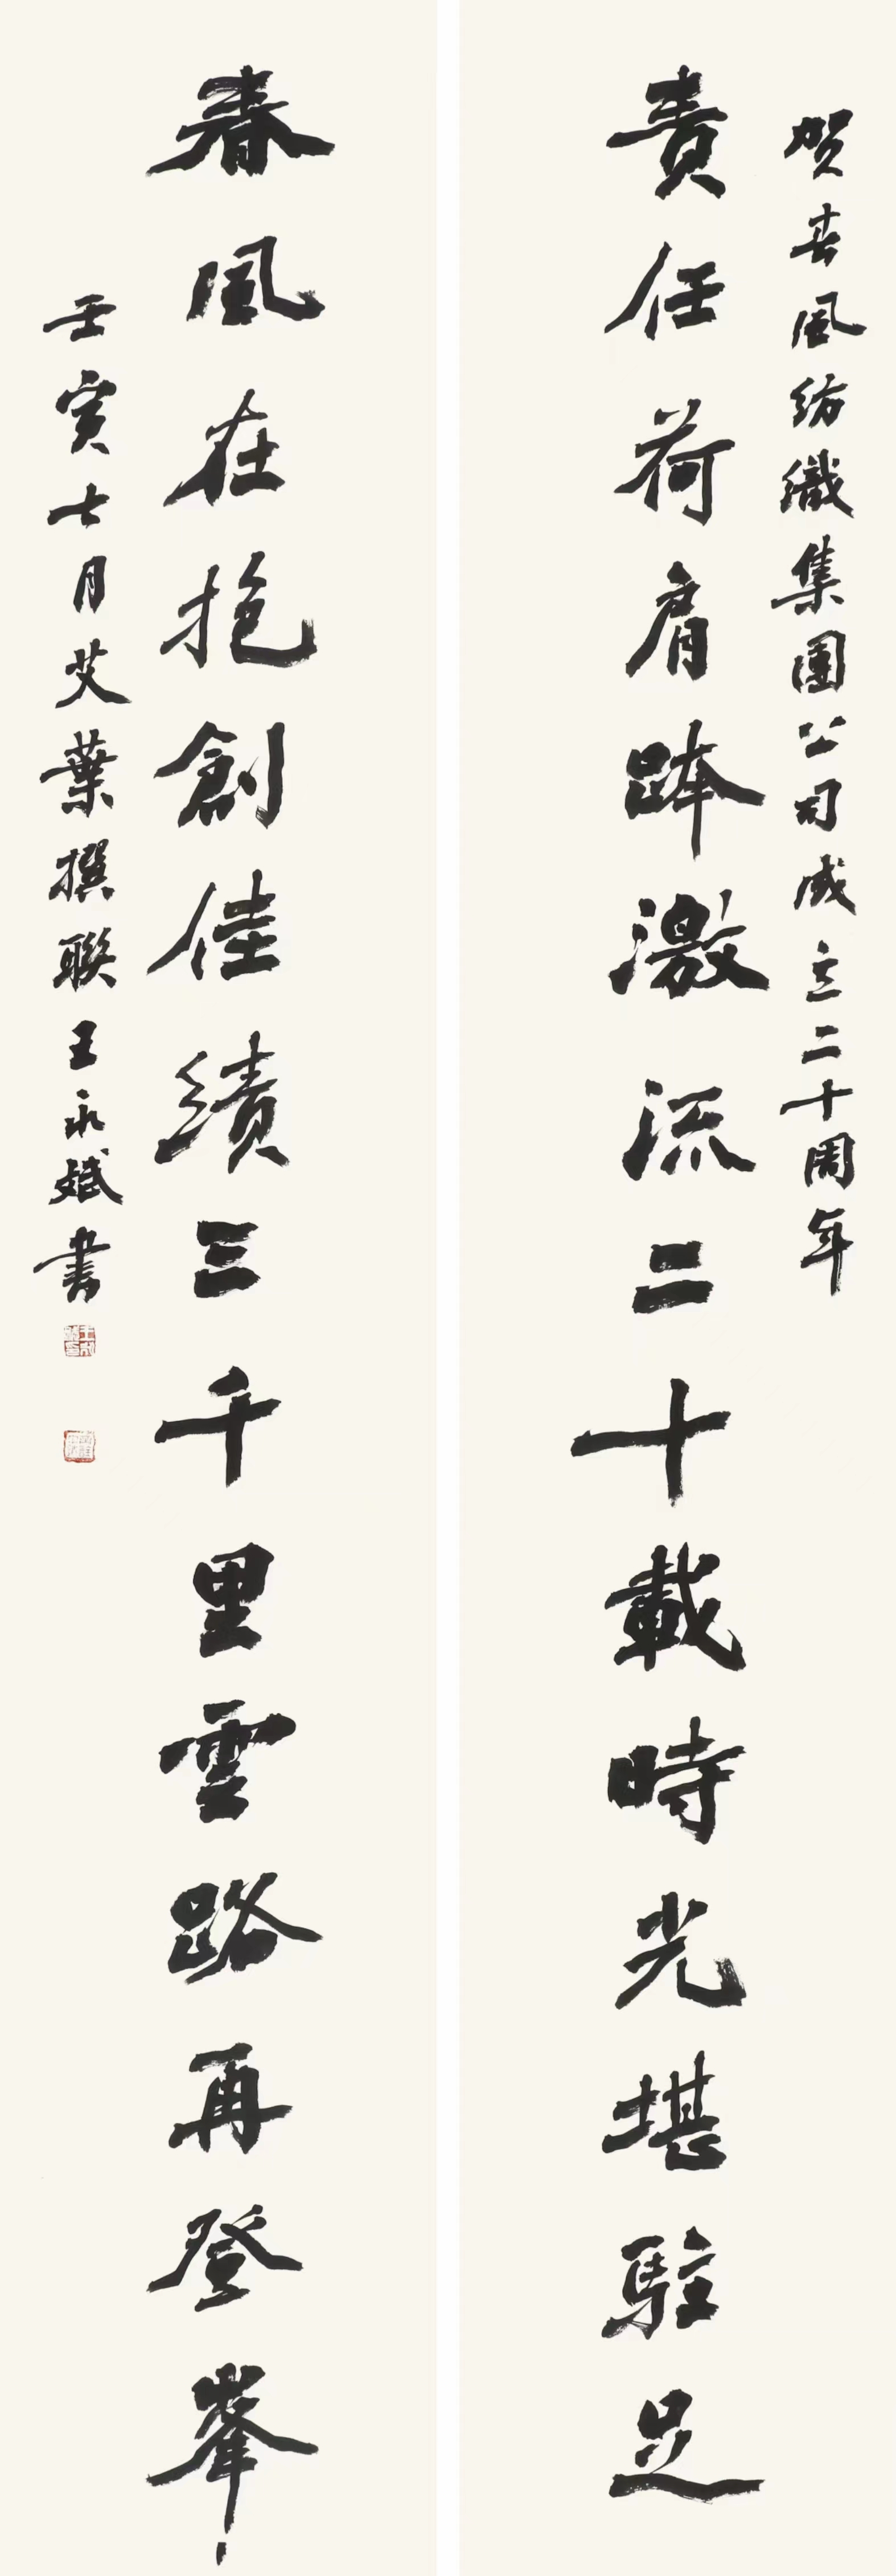 贺春风纺織集團公司成立二十周年
責任荷肩踔激流二十載時光堪駐足
春風在抱創佳績三千里雲路再登峯
壬寅七月艾葉撰聯王永斌書